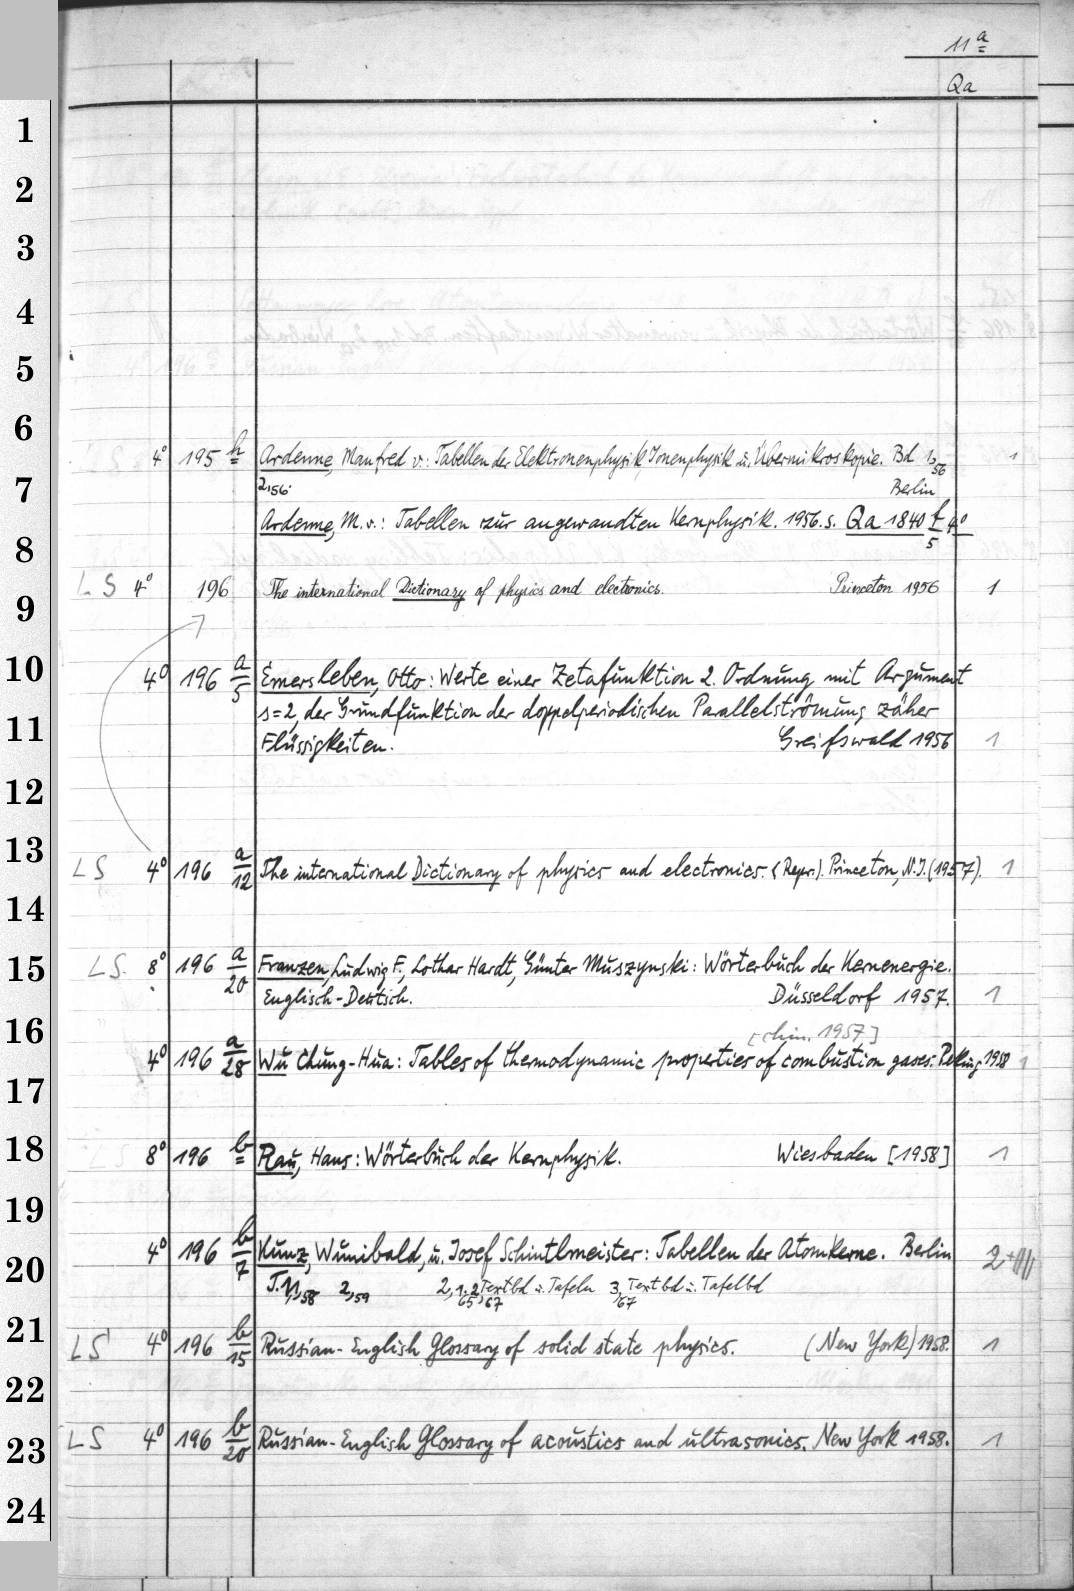 11 a
Qa
1
2
3
4
5
6
4° 195 h Ardenne, Manfred v.: Tabellen der Elektronenphysik, Ionenphysik u. Übermikroskopie. Bd 1,56 1
7
2,56. Berlin
Ardenne, M.v.: Tabellen zur angewandten Kernphysik. 1956. s. Qa 1840 f/5 4°
8
LS 4° 196 The international Dictionary of physics and electronics. Princeton 1956 1
9
10
4° 196 a/5 Emersleben, Otto: Werte einer Zetafunktion 2. Ordnung mit Argument
s=2, der Grundfunktion der doppelperiodischen Parallelströmung zäher
11
Flüssigkeiten. Greifswald 1956 1
12
13
LS 4° 196 a/12 The international Dictionary of physics and electronics. (Repr.). Princeton, N.J. (1957). 1
14
15
LS. 8° 196 a/20 Franzen, Ludwig F., Lothar Hardt, Günter Muszynski: Wörterbuch der Kernenergie.
Englisch-Deutsch. Düsseldorf 1957. 1
16
[chin. 1957]
4° 196 a/28 Wu Chung-Hua: Tables of thermodynamic properties of combustion gases. Peking 1958 1
17
18
8° 196 b Rau, Hans: Wörterbuch der Kernphysik. Wiesbaden [1958] 1
19
4° 196 b/7 Kunz, Wunibald, u. Josef Schintlmeister: Tabellen der Atomkerne. Berlin 2+
20
T. 1,1,58 2,59 2,1.2,Textbd u. Tafeln 3,Textbd u. Tafelbd
65, 67 67
21
LS 4° 196 b/15 Russian-English Glossary of solid state physics. (New York) 1958. 1
22
LS 4° 196 b/20 Russian-English Glossary of acoustics and ultrasonics. New York 1958. 1
23
24